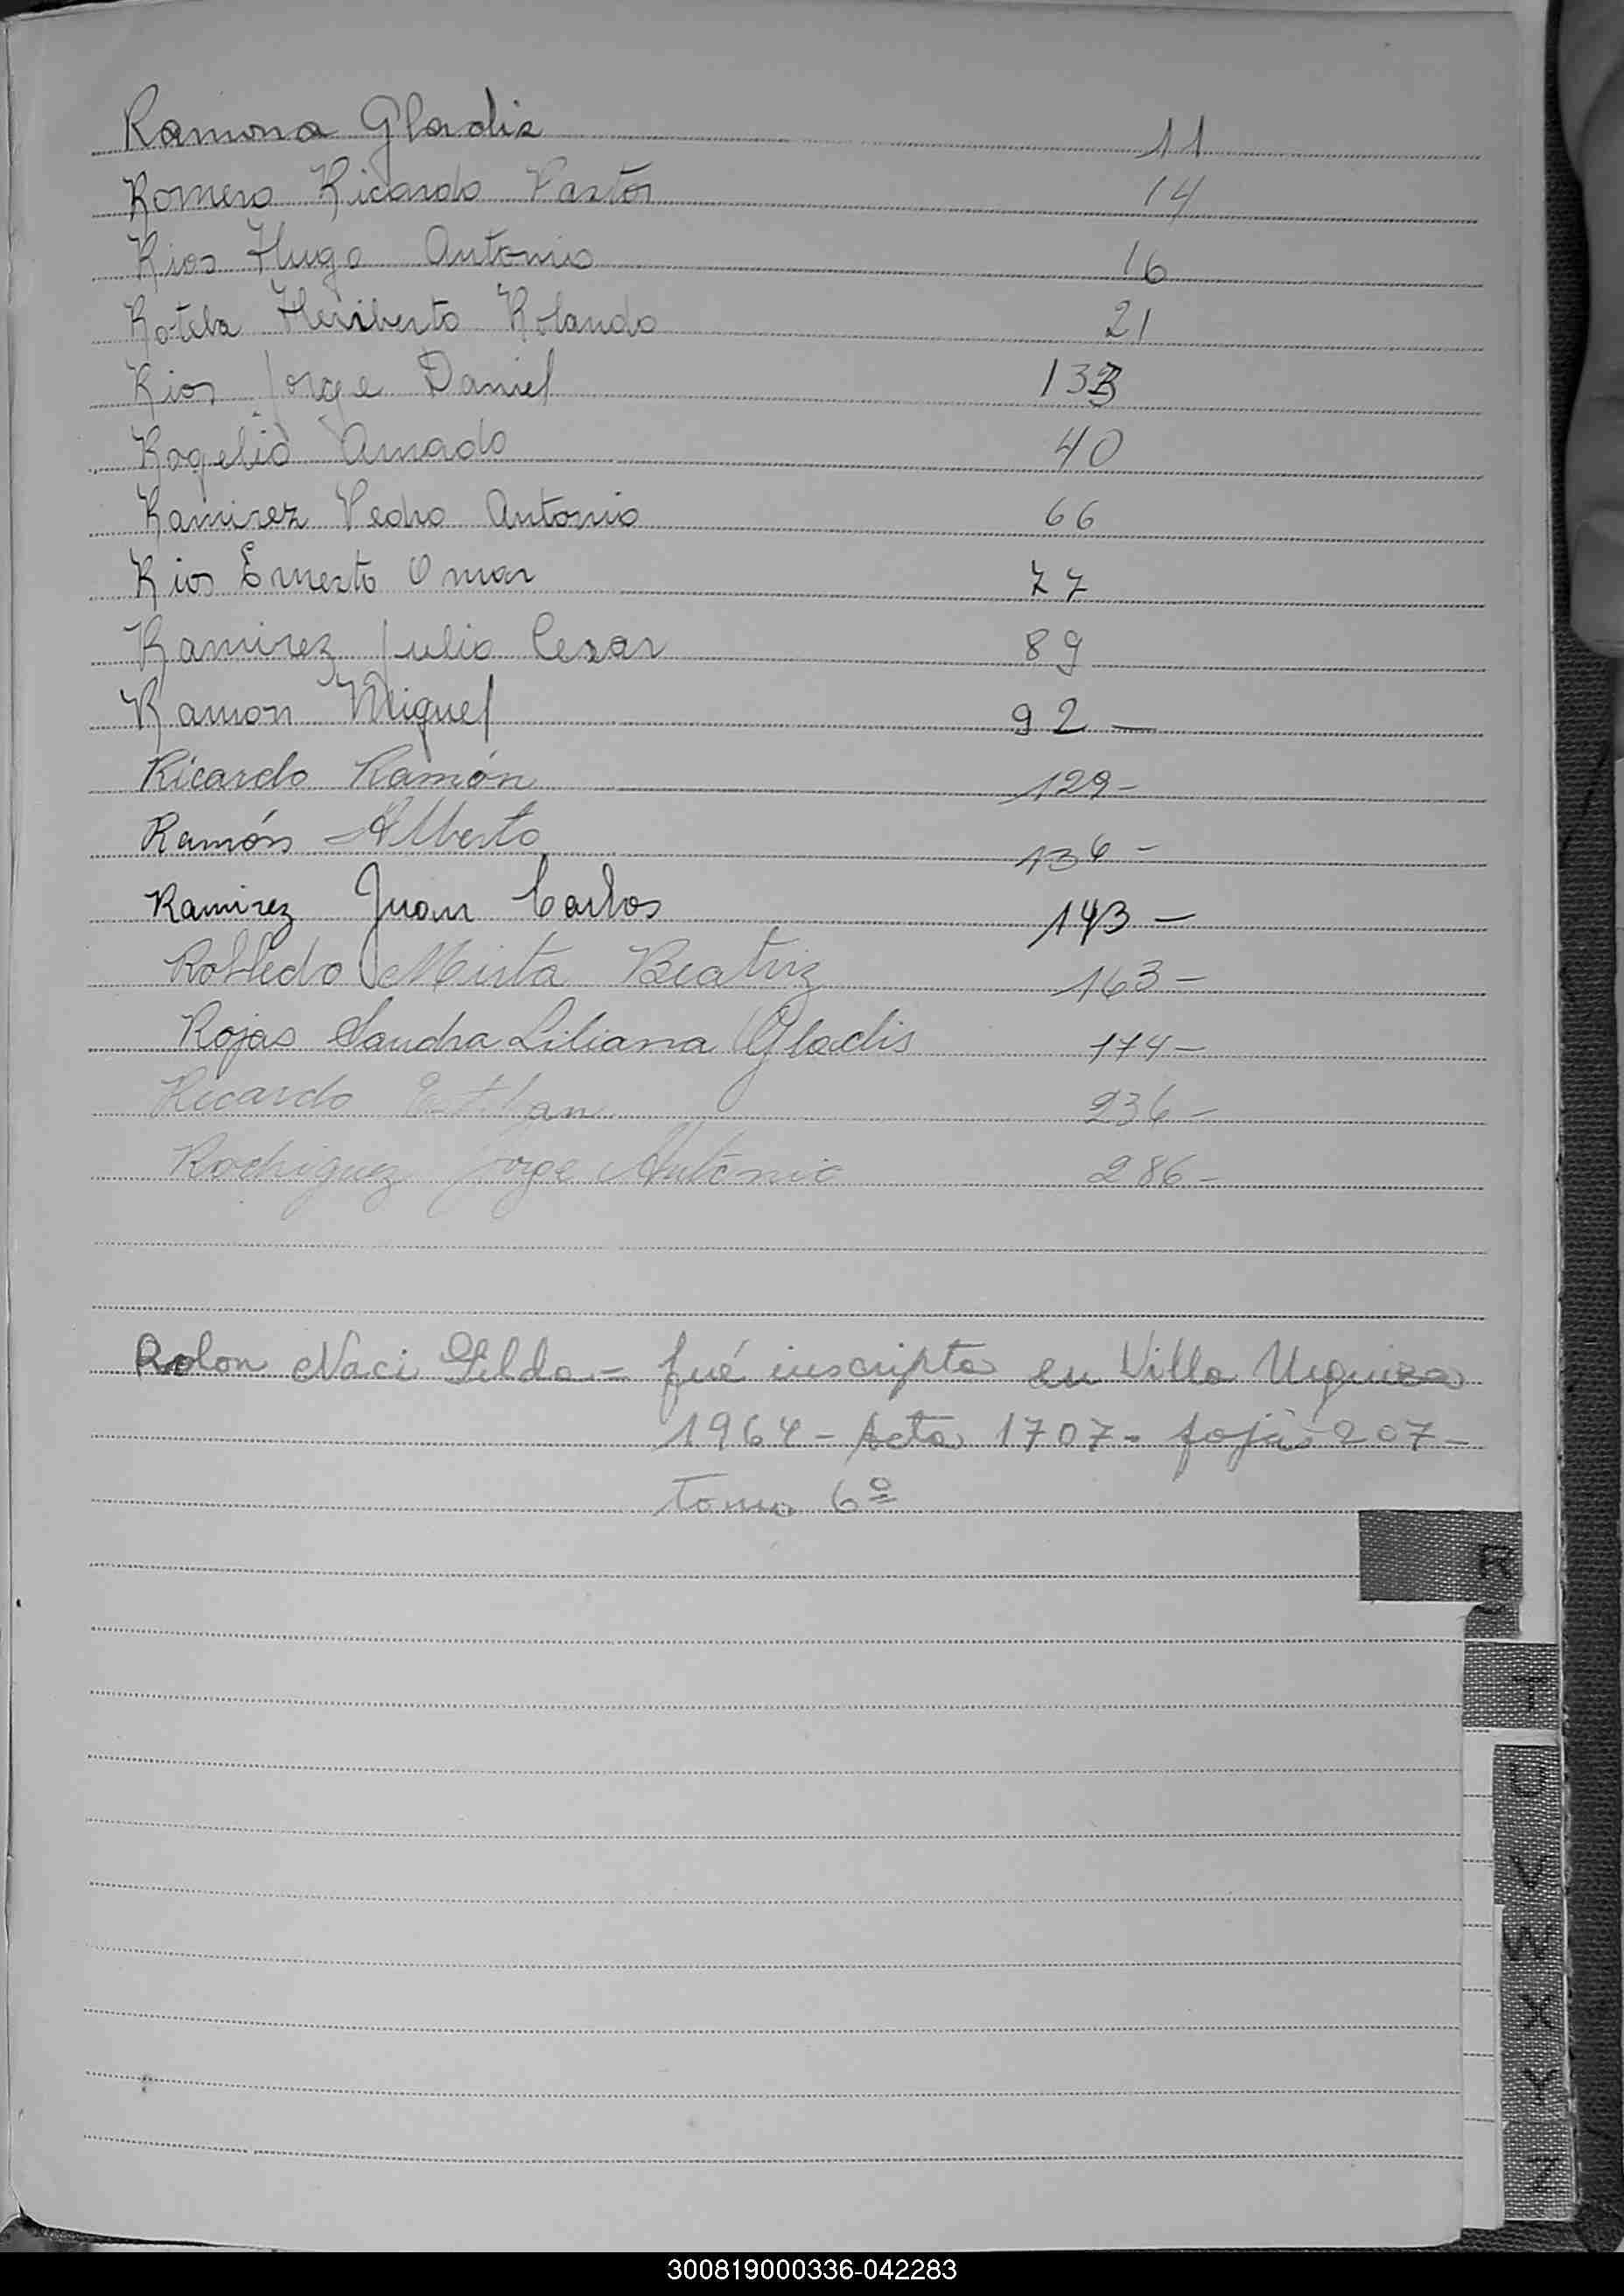 Ramona Gladis 11
Romero Ricardo Pastor 14
Rios Hugo Antonio 16
Rotela Heriberto Rolando 21
Rios Jorge Daniel
Rogelio Amado 40
Ramirez Pedro Antonio 66
Rios Ernesto Omar 77
Ramirez Julio Cesar 89
Ramon Miguel 92 —
Ricardo Ramón 129 -
Ramón Alberto 136 -
Ramirez Juan Carlos 143 —
Robledo Mirta Beatriz 163 -
Rojas Sandra Liliana Gladis 174 -
Ricardo 236 -
Rodriguez Jorge Antonio 286 -
Rolon Naci Gilda = fué inscripta en Villa Urquiza
1964 - Acta 1707 - foja 207 -
Tomo 6º
R
T
U
V
W
X
Y
Z
300819000336-042283